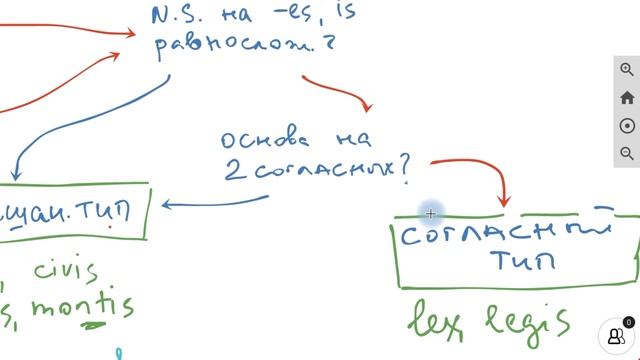 N.S. на -es, is
равнослож.?
основа на
2 согласных?
шан. тип
согласный
тип
, civis
s, montis
lex, legis
0